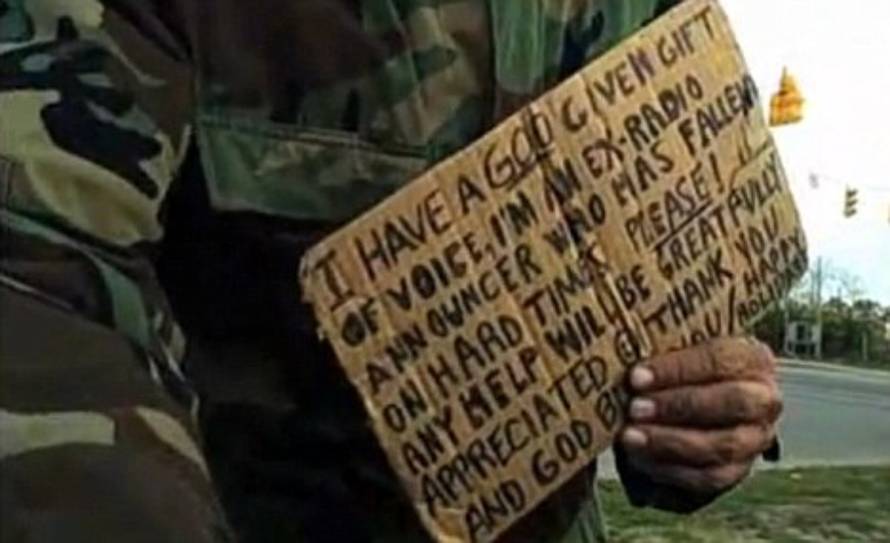 I HAVE A GOD GIVEN GIFT
OF VOICE, I'M AN EX-RADIO
ANNOUNCER WHO HAS FALLEN
ON HARD TIMES PLEASE!
ANY HELP WILL BE GREATFULLY
APPRECIATED THANK YOU
AND GOD YOU/HAPPY
HOLIDAYS